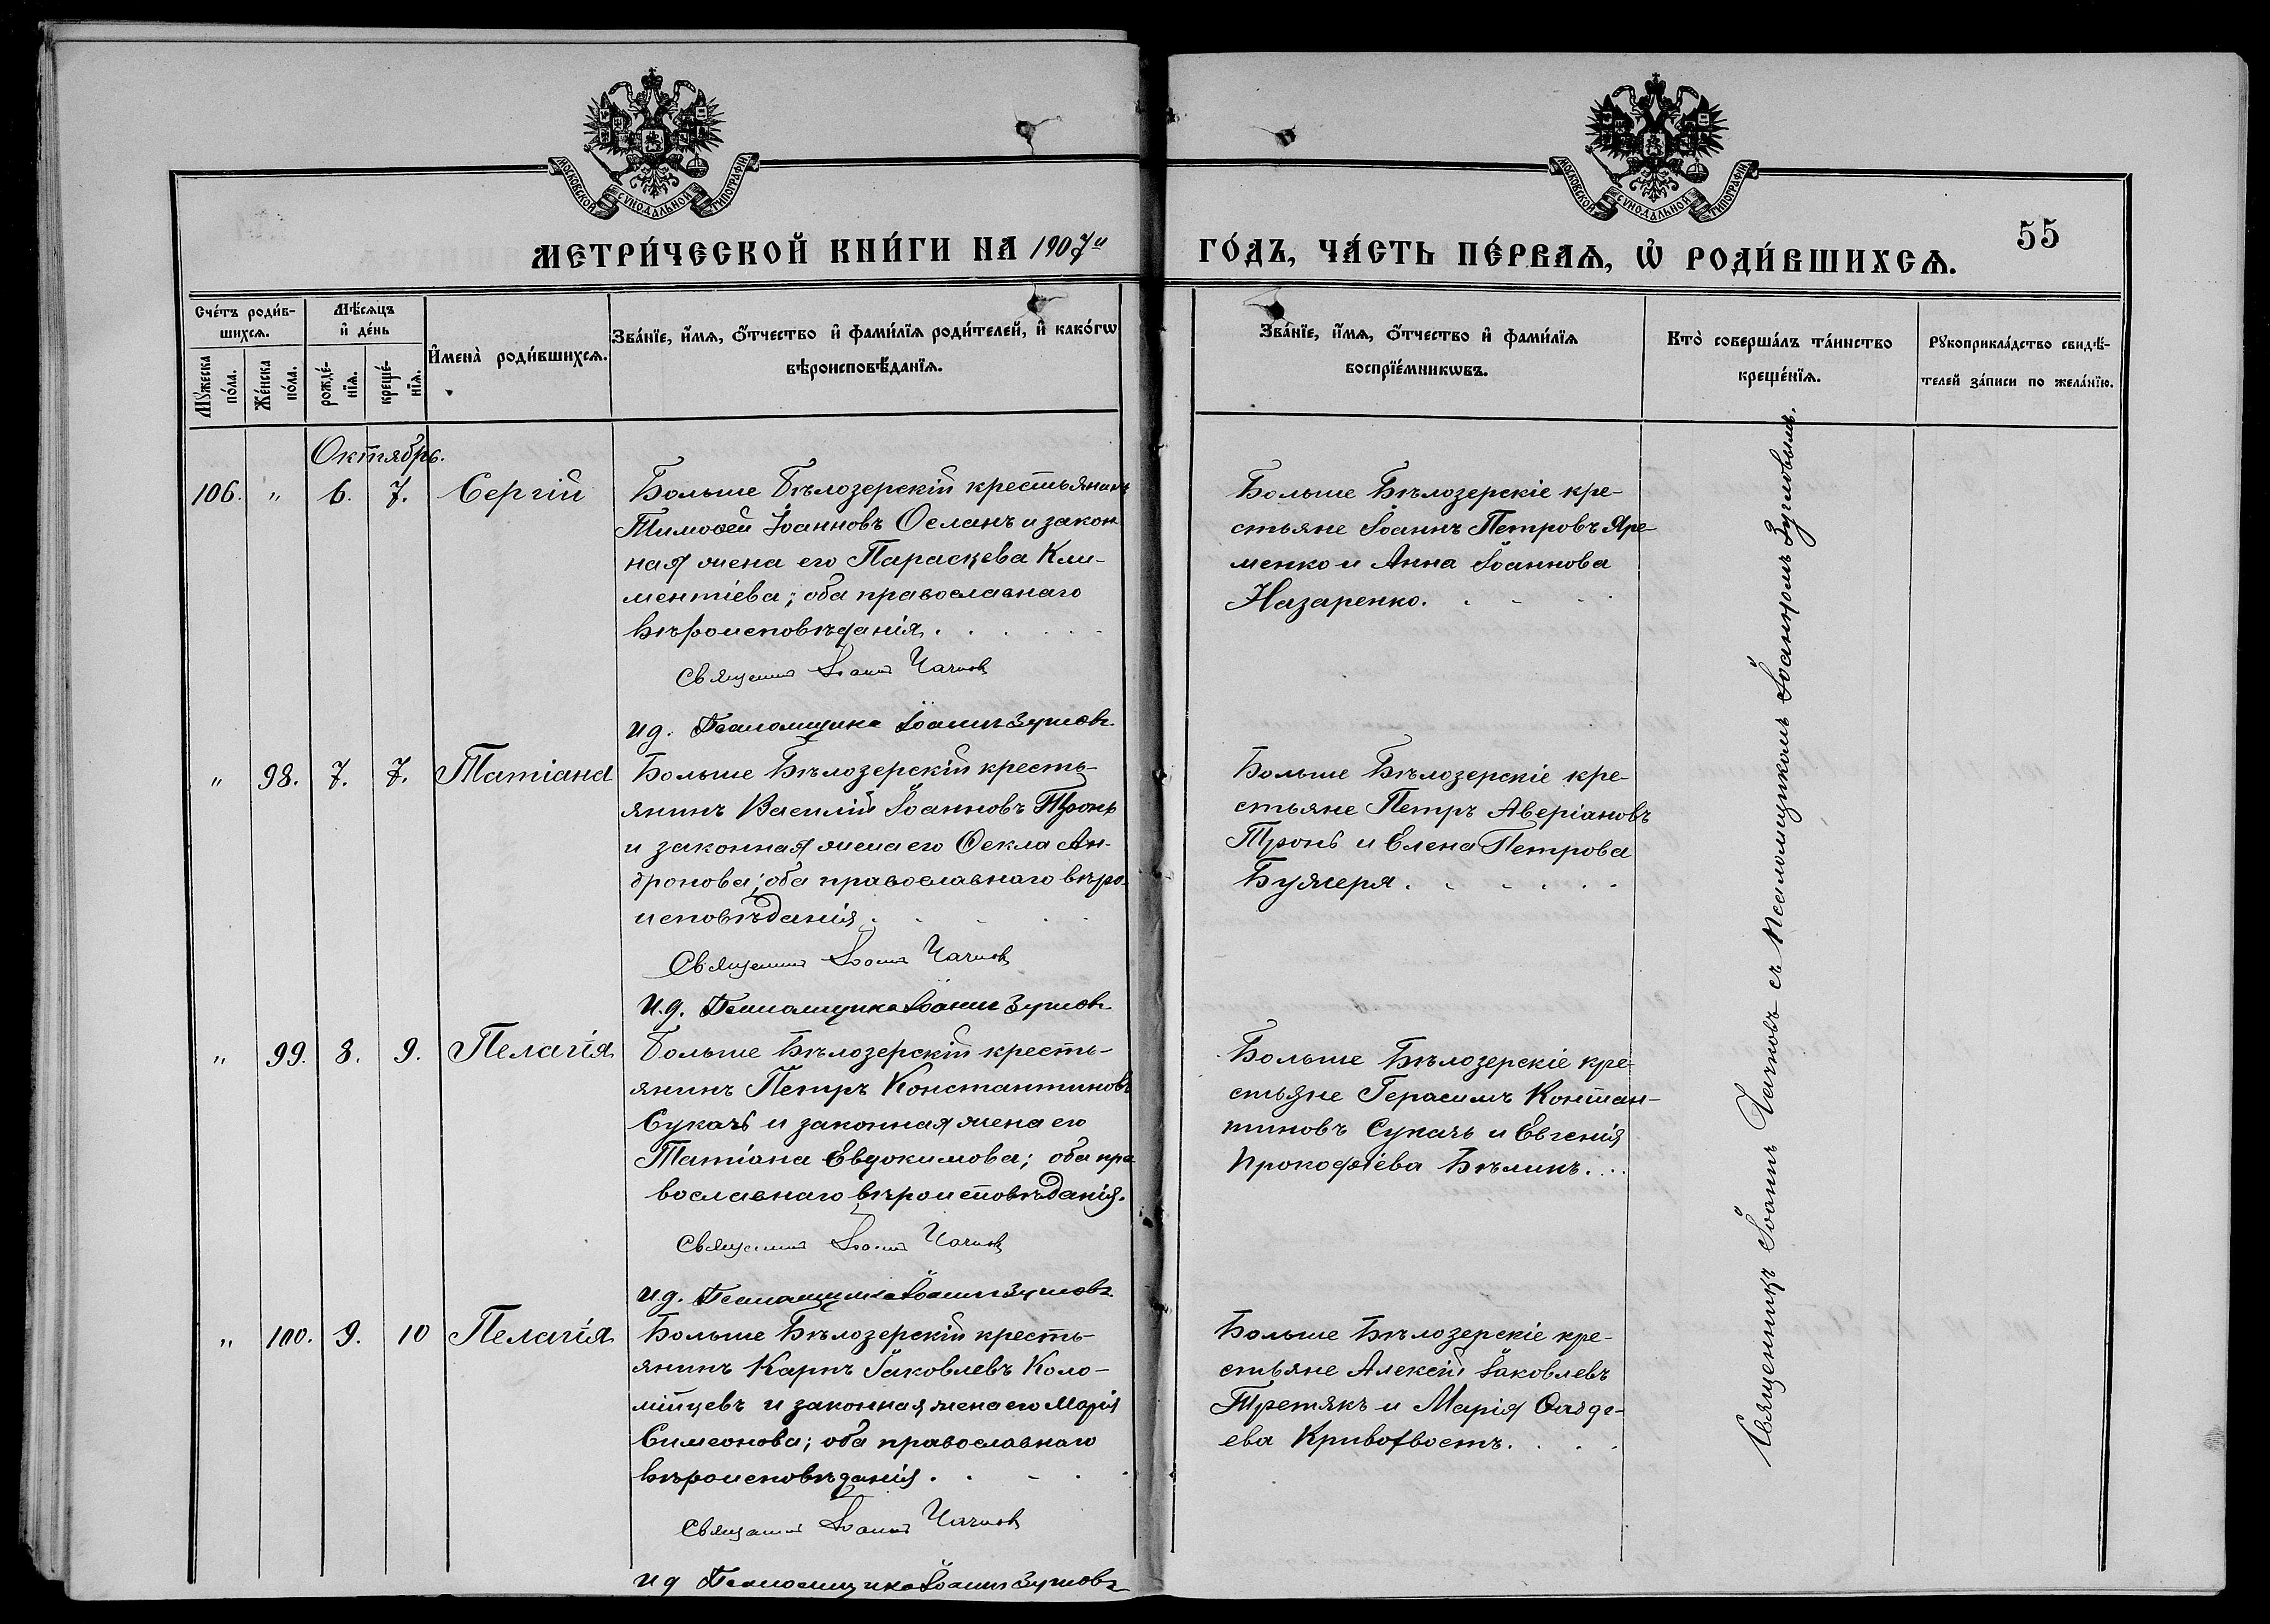 МОСКОВСКОЙ СУНОДАЛЬНОЙ ТИПОГРАФІИ
МОСКОВСКОЙ СУНОДАЛЬНОЙ ТИПОГРАФІИ
55
МЕТРИ́ЧЕСКОЙ КНИ́ГИ НА 1907й
ГО́ДЪ, ЧА́СТЬ ПЕ́РВАѦ, Ѡ҆ РОДИ́ВШИХСѦ.
Сче́тъ роди́в-
шихсѧ.
Мѣ́сѧцъ
и҆ де́нь
Мꙋ́жеска
по́ла.
Же́нска
по́ла.
рожде́-
нїѧ.
креще́-
нїѧ.
И҆мена̀ роди́вшихсѧ.
Зва́нїе, и҆́мѧ, ѻ҆́тчество и҆ фами́лїѧ роди́телей, и҆ како́гѡ
вѣроисповѣ́данїѧ.
Зва́нїе, и҆́мѧ, ѻ҆́тчество и҆ фами́лїѧ
воспрїе́мникѡвъ.
Кто̀ соверша́лъ та́инство
креще́нїѧ.
Рꙋкоприкла́дство свидѣ́-
телей за́писи по жела́нїю.
Октябрь.
106. " 6. 7. Сергій
Больше Бѣлозерскій крестьянинъ
Тимоѳей Іоанновъ Осланъ и закон
ная жена его Параскева Кли-
ментіева; оба православнаго
вѣроисповѣданія.
Священникъ Іоаннъ Чачковъ
И д. Псаломщика Іоаннъ Зумовъ
Больше Бѣлозерскіе кре-
стьяне Іоаннъ Петровъ Яре-
менко и Анна Іоаннова
Назаренко.
" 98. 7. 7. Татіана
Больше Бѣлозерскій кресть-
янинъ Василій Іоанновъ Тронь
и законная жена его Ѳекла Ан-
дронова; оба православнаго вѣро-
исповѣданія.
Священникъ Іоаннъ
И.д. Псаломщика Іоаннъ
Больше Бѣлозерскіе кре-
стьяне Петръ Аверіановъ
Тронь и Елена Петрова
Бужеря.
" 99. 8. 9. Пелагія
Больше Бѣлозерскій кресть-
янинъ Петръ Константиновъ
Сукачъ и законная жена его
Татіана Евдокимова; оба пра
вославнаго вѣроисповѣданія.
Священникъ Іоаннъ
И.д. Псаломщика Іоаннъ
Больше Бѣлозерскіе кре-
стьяне Герасимъ Контан-
тиновъ Сукачъ и Евгенія
Прокофіева Бѣликъ.
" 100. 9. 10 Пелагія
Больше Бѣлозерскій кресть-
янинъ Карпъ Іаковлевъ Коло-
мійцевъ и законная жена его Марія
Симеонова; оба православнаго
вѣроисповѣданія.
Священникъ Іоаннъ
И д Псаломщика Іоаннъ
Больше Бѣлозерскіе кре-
стьяне Алексій Іаковлевъ
Третякъ и Марія Ѳадде-
ева Кривохвостъ.
Священникъ Іоаннъ съ Псаломщикомъ Іоанномъ